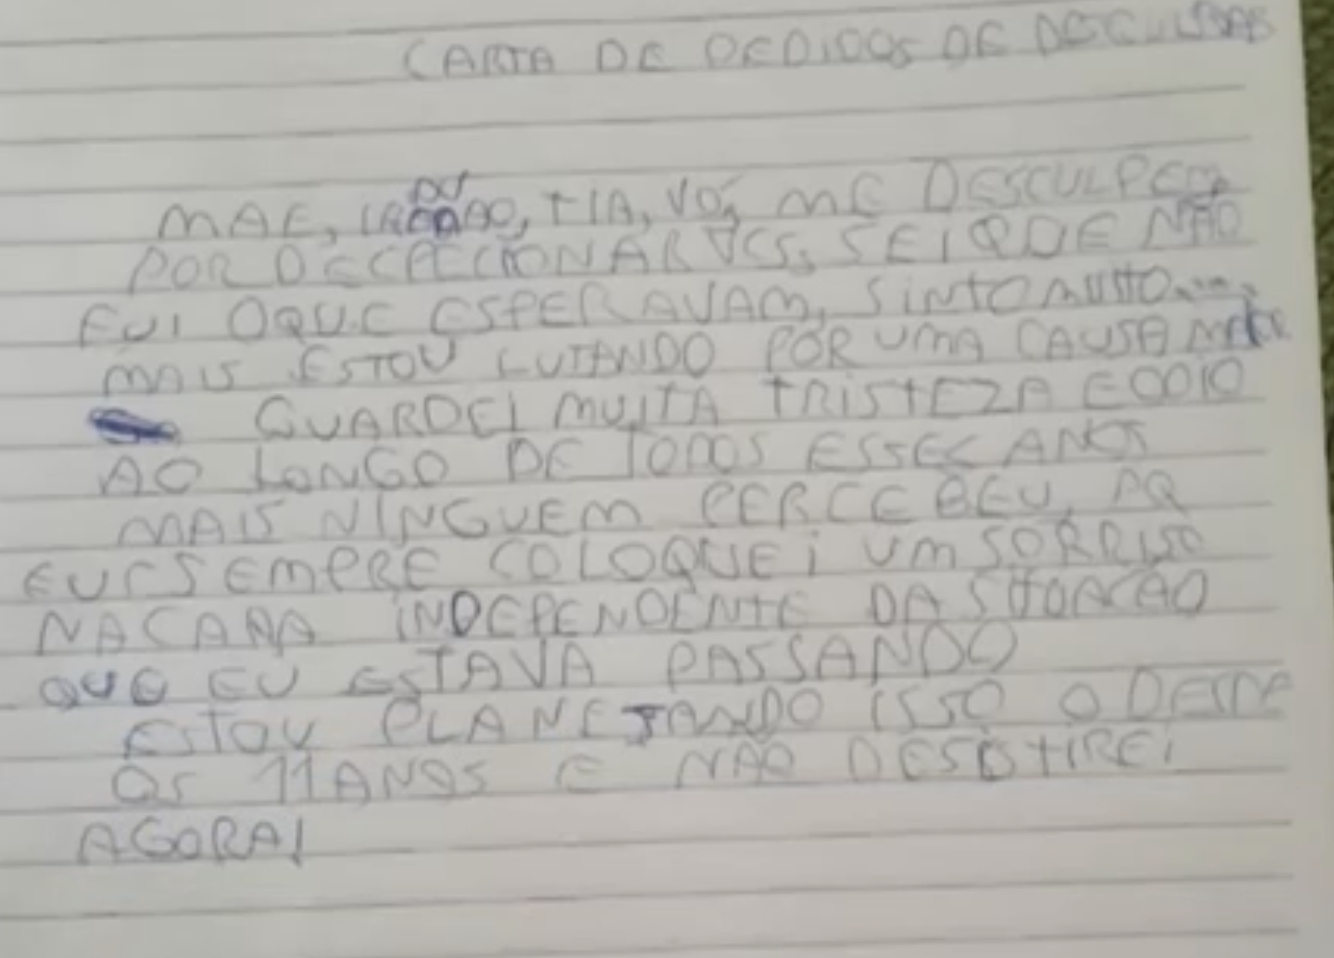 CARTA DE PEDIDOS DE DESCULPAS
MAE, IRMAO, TIA, VÓ, ME DESCULPEM
POR DECEPCIONAR VCS, SEI QUE NÃO
FUI OQUE ESPERAVAM, SINTO MUITO....
MAIS ESTOU LUTANDO POR UMA CAUSA
GUARDEI MUITA TRISTEZA E ODIO
AO LONGO DE TODOS ESSES ANOS
MAIS NINGUEM PERCEBEU, PQ
EU SEMPRE COLOQUEI UM SORRISO
NA CARA INDEPENDENTE DA SITUACAO
QUE EU ESTAVA PASSANDO
ESTOU PLANEJANDO ISSO DESDE
OS 11 ANOS E NAO DESISTIREI
AGORA!